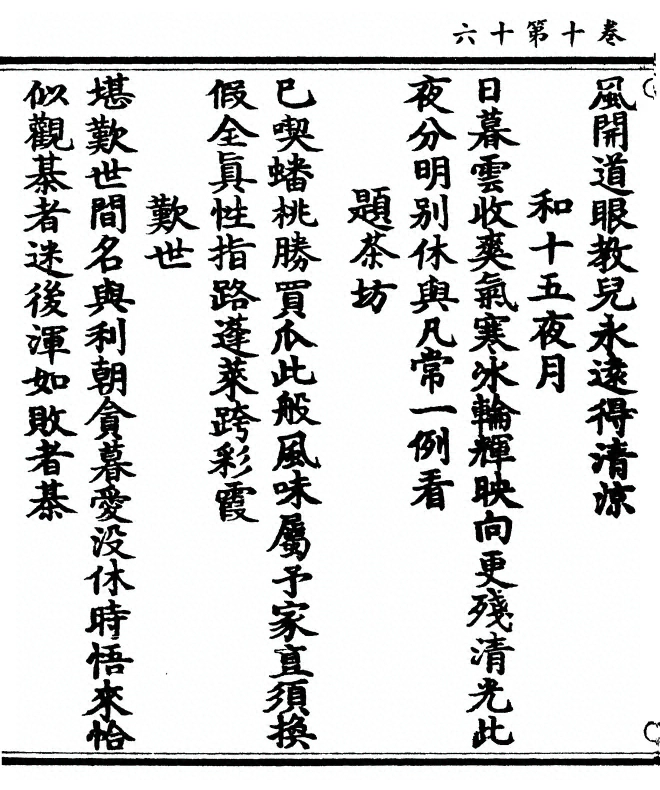 卷十第十六
風開道眼教兒永遠得清涼
和十五夜月
日暮雲收爽氣寒冰輪輝映向更殘清光此
夜分明别休與凡常一例看
題茶坊
已喫蟠桃勝買瓜此般風味屬予家直須換
假全眞性指路蓬萊跨彩霞
歎世
堪歎世間名與利朝貪暮愛没休時悟來恰
似觀棊者迷後渾如敗者棊